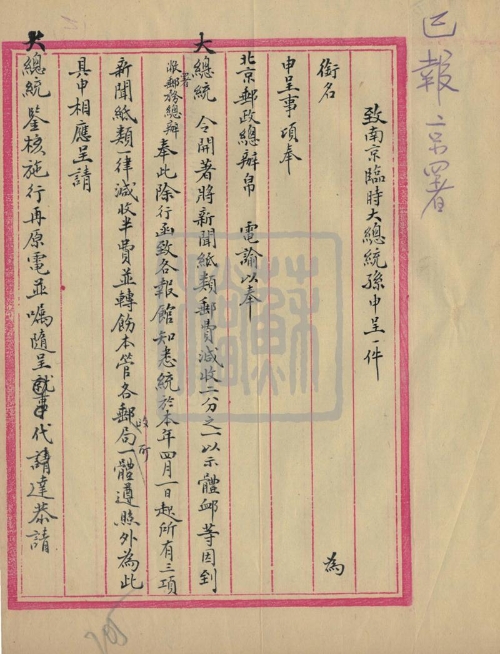 已報京署
致南京臨時大總統孫申呈一件
銜名 為
申呈事項奉
北京郵政總辦帛 電諭以奉
大總統 令開著將新聞紙類郵費減收二分之一以示體卹等因到
署
敝郵務總辦 奉此除行函致各報館知悉統於本年四月一日起所有三項
新聞紙類一律減收半費並轉飭本管各郵局一體遵照外為此
收所
具申相應呈請
大總統鑒核施行再原電並囑隨呈就事代請達恭請
蘇